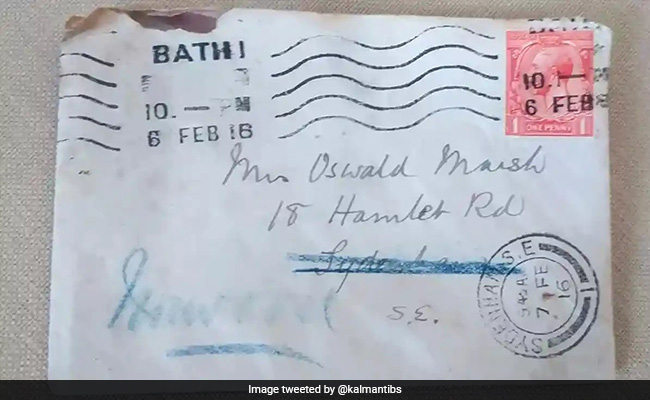 BATH
10. — PM
6 FEB 16
10. —
6 FEB
1 ONE PENNY 1
Mrs Oswald Marsh
18 Hamlet Rd
Sydenham
S.E.
SYDENHAM. S.E.
7 FE
16
Image tweeted by @kalmantibs